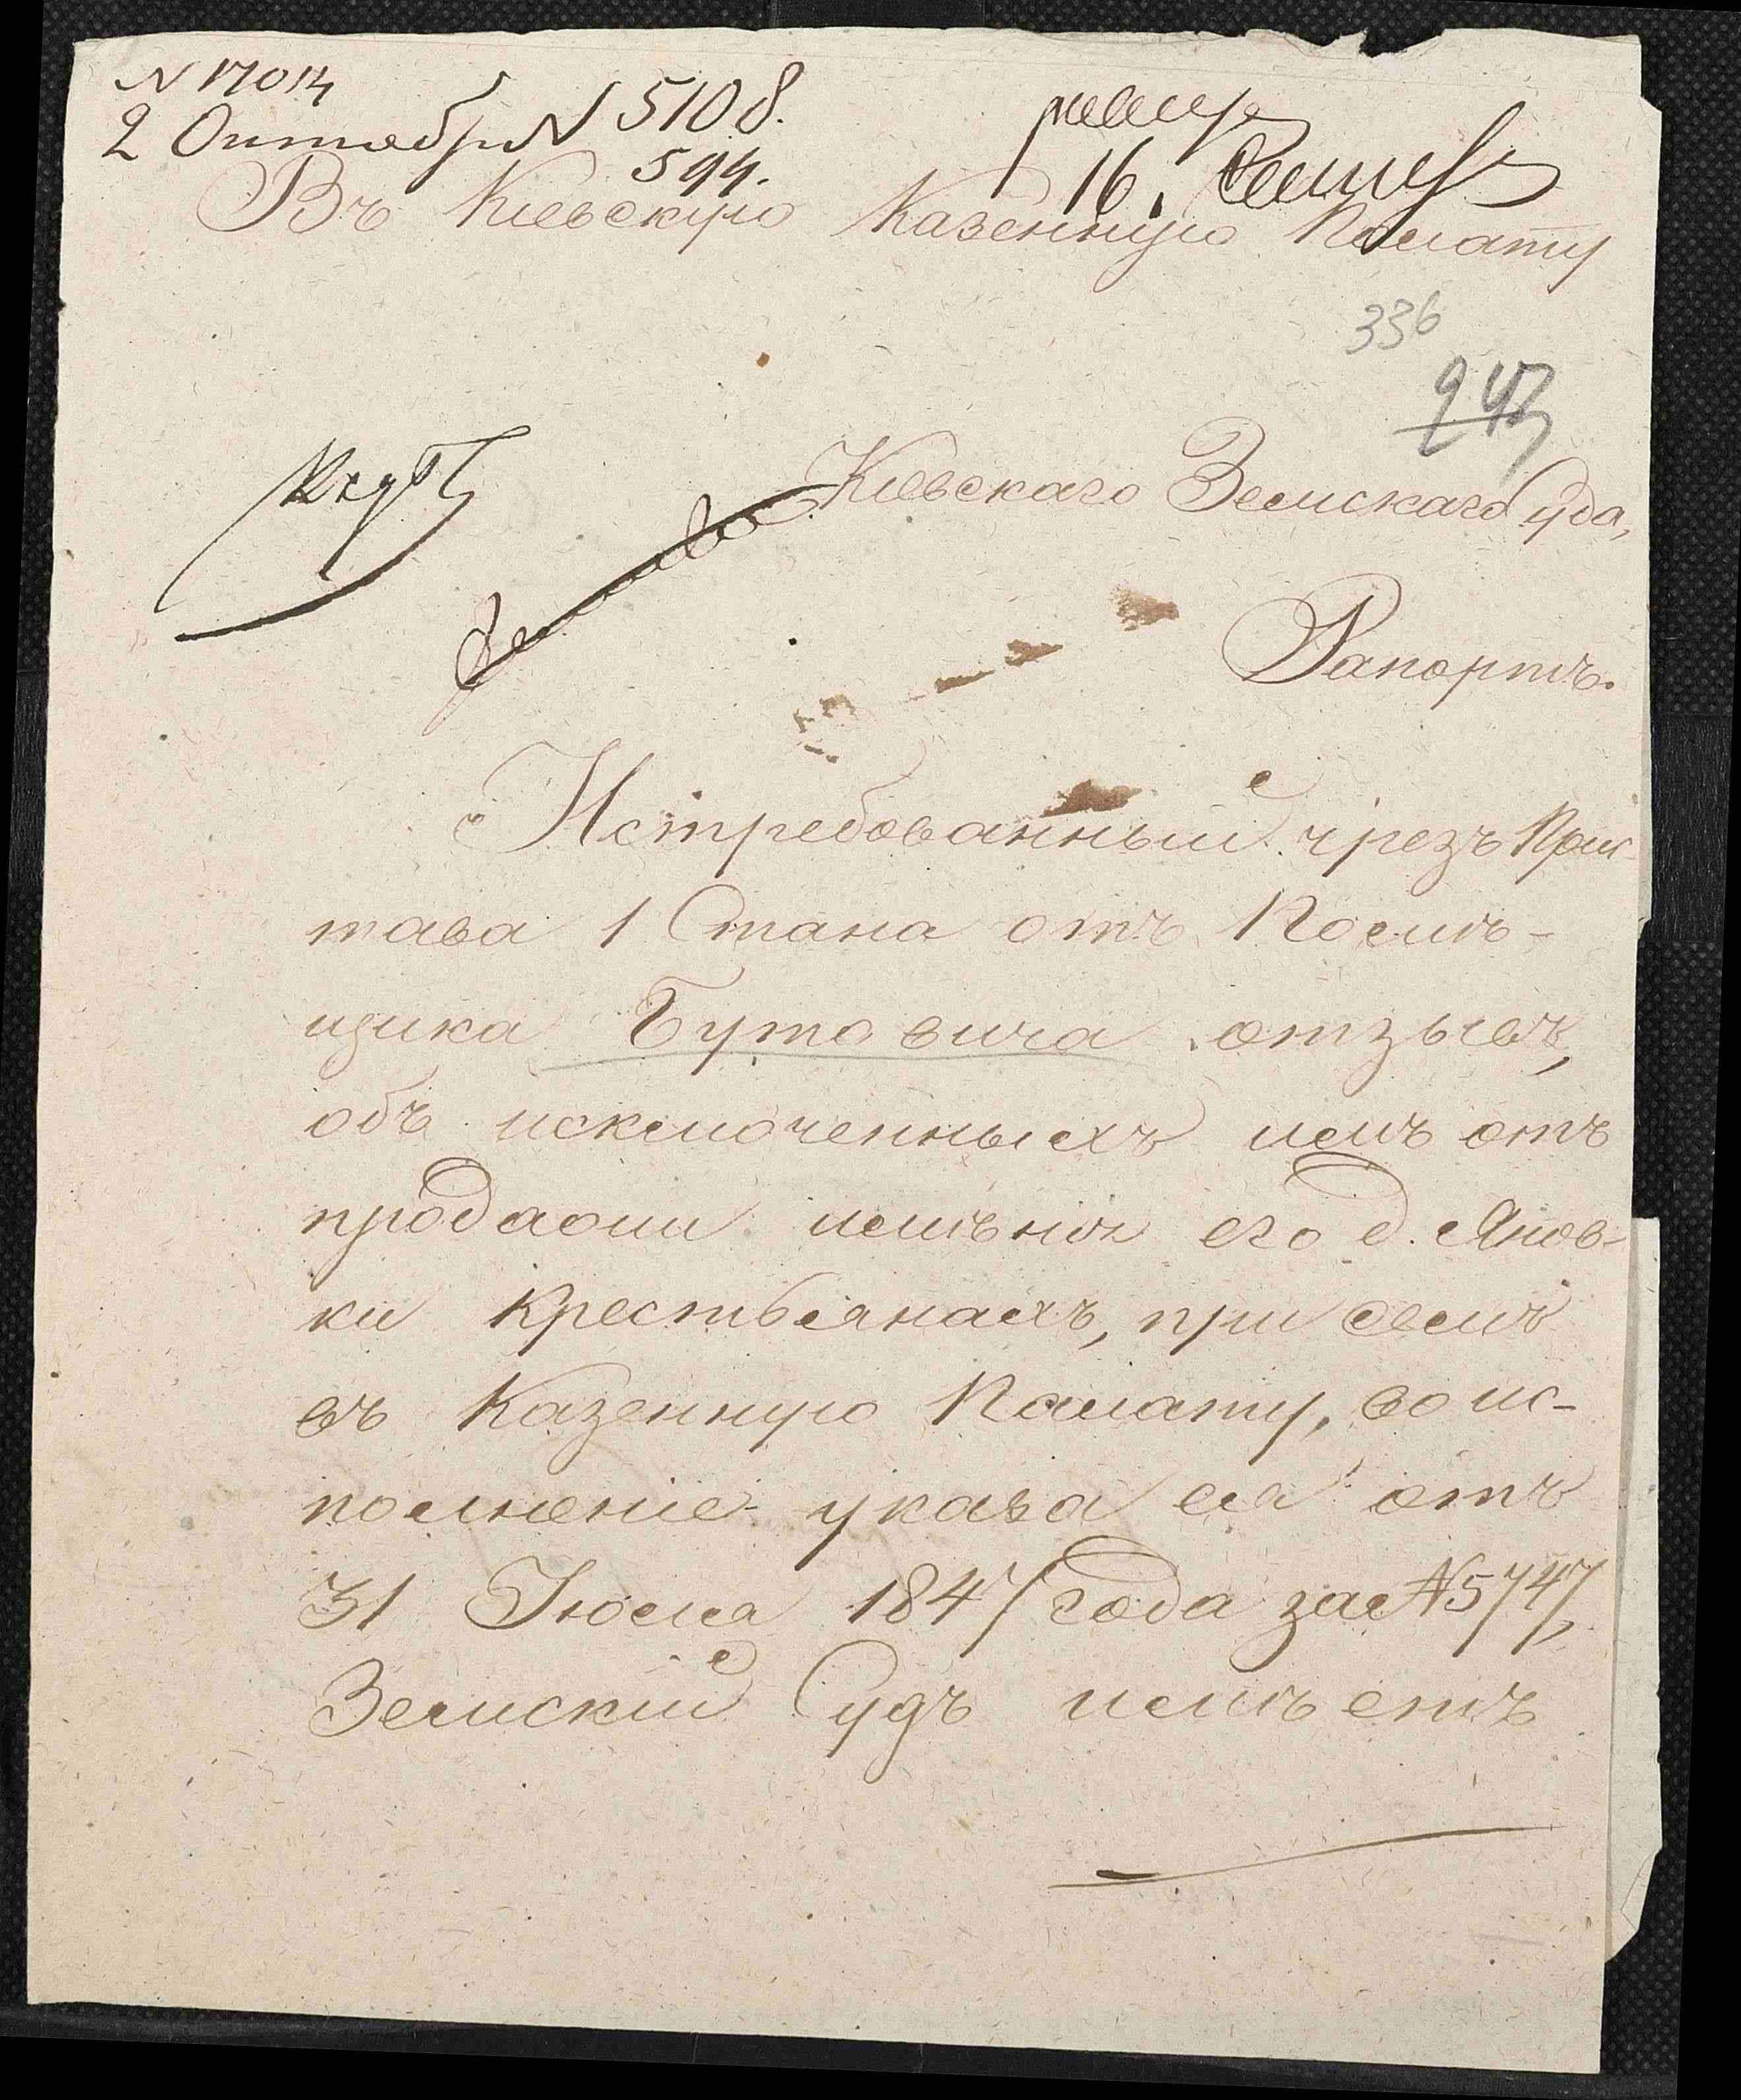 N 17014
2 Октября N 5108.
594.
16.
Въ Кіевскую Казенную Палату
336
247
Кіевскаго Земскаго Суда,
Рапортъ.
Истребованный чрезъ Прис-
тава 1 Стана отъ Помѣ-
щика Бутовича отзывъ,
объ исключенныхъ имъ отъ
продажи имѣнія его д. Янов-
ки крестьянахъ, при семъ
въ Казенную Палату, во ис-
полненіе указа ея отъ
31 Іюля 1847 года за N 5747,
Земскій Судъ имѣетъ